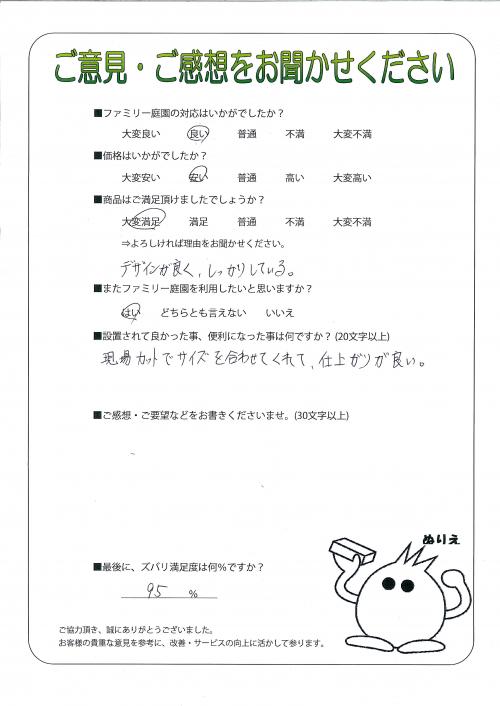 ご意見・ご感想をお聞かせください
■ファミリー庭園の対応はいかがでしたか？
大変良い 良い 普通 不満 大変不満
■価格はいかがでしたか？
大変安い 安い 普通 高い 大変高い
■商品はご満足頂けましたでしょうか？
大変満足 満足 普通 不満 大変不満
⇒よろしければ理由をお聞かせください。
デザインが良く、しっかりしている。
■またファミリー庭園を利用したいと思いますか？
はい どちらとも言えない いいえ
■設置されて良かった事、便利になった事は何ですか？(20文字以上)
現場カットでサイズを合わせてくれて、仕上ガリが良い。
■ご感想・ご要望などをお書きくださいませ。(30文字以上)
ぬりえ
■最後に、ズバリ満足度は何%ですか？
95 %
ご協力頂き、誠にありがとうございました。
お客様の貴重な意見を参考に、改善・サービスの向上に活かして参ります。